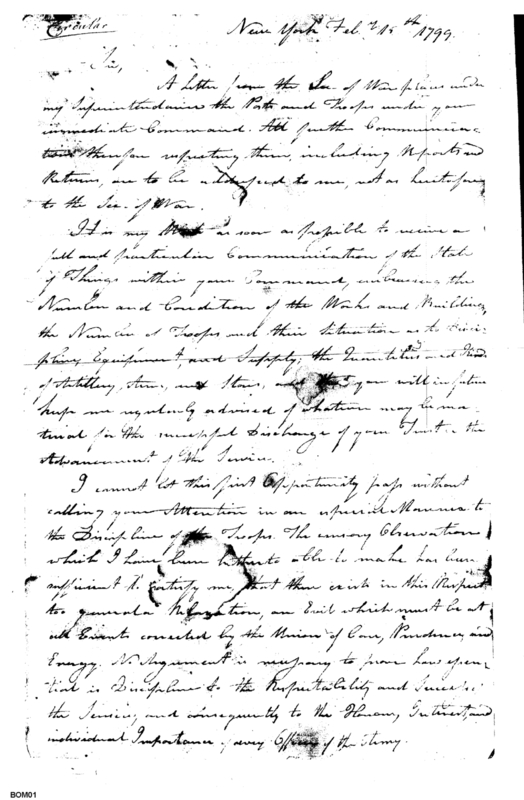 Circular
New York Feb.y 15th 1799.
Sir,
A Letter from the Sec of War places under
my Superintendance the Posts and Troops under your
immediate Command. All further Communica-
tions therefore respecting them, including Reports and
Returns, are to be addressed to me, not as heretofore
to the Sec. of War.
It is my as soon as possible to receive a
full and particular Communication of the State
of Things within your Command, embracing the
Number and Condition of the Works and Buildings,
the Number of Troops and their Situation as to Disci-
pline, Equipment, and Supply; the Quantities and Kinds
of Artillery, Arms, and Stores, and that you will in future
keep me regularly advised of whatever may be ma-
terial for the successful Discharge of your Trust & the
Advancement of the Service.
I cannot let this first Opportunity pass without
calling your Attention in an especial Manner to
the Discipline of the Troops. The cursory Observation
which I have been hitherto able to make has been
sufficient to me, that there exists in this Respect
too general a Relaxation, an Evil which must be at
all Events corrected by the Union of Care, Prudence, and
Energy. No Argument is necessary to prove how essen-
tial is Discipline to the Respectability and Success
the Service, and consequently to the Honour, Interest, and
individual Importance of every Officer of the Army.
BOM01